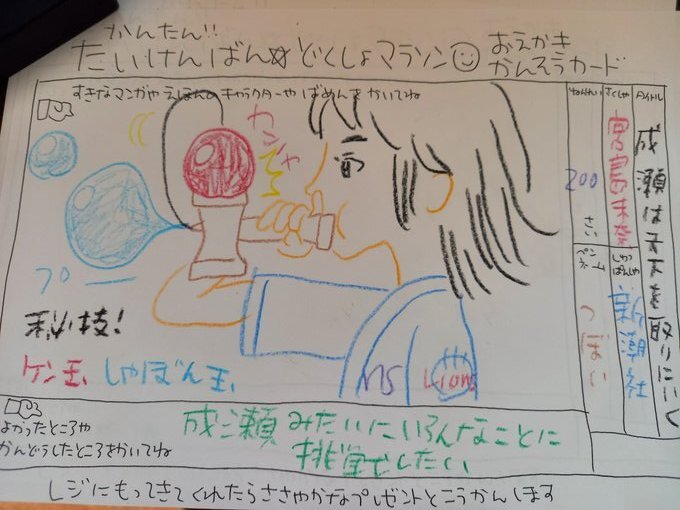 かんたん!!
たいけんばん☆どくしょマラソン☺
おえかき
かんそうカード
すきなマンガやえほんのキャラクターやばめんをかいてね
タイトル
成瀬は天下を取りにいく
さくしゃ
宮島未奈
しゅっぱんしゃ
新潮社
ねんれい
200
さい
ペンネーム
つぼい
カンッ
プロー
ケン玉、しゃぼん玉、
MS
Lion
よかったところや
かんどうしたところをかいてね
成瀬みたいにいろんなことに
挑戦したい
レジにもってきてくれたらささやかなプレゼントとこうかんします